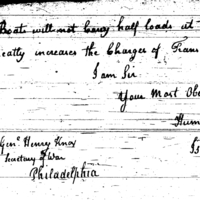 Boats will not carry half loads it
eatly increases the Charges of Trans
I am Sir
Your Most Obe
Hum
Genl. Henry Knox
Secretary of War
Philadelphia